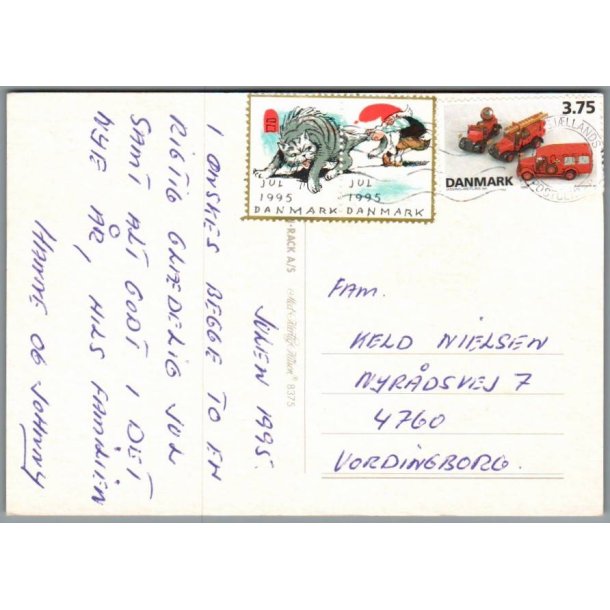 JULEN 1995.
I ØNSKES BEGGE TO EN
RIGTIG GLÆDELIG JUL
SAMT ALT GODT I DET
NYE ÅR, HILS FAMILIEN
HANNE OG JOHNNY
JUL JUL
1995 1995
DANMARK DANMARK
3.75
DANMARK
SJÆLLANDS
RACK A/S
8375
FAM.
KELD NIELSEN
NYRÅDSVEJ 7
4760
VORDINGBORG.